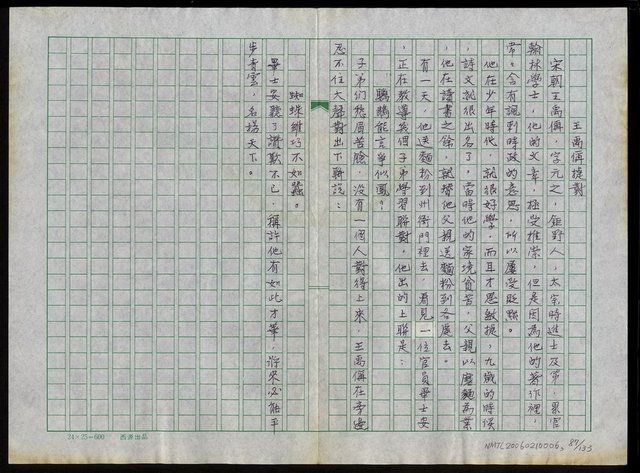 王禹偁捷對
宋朝王禹偁，字元之，鉅野人，太宗時進士及第，累官
翰林學士，他的文章，極受推崇，但是因為他的著作裡，
常含有諷刺時政的意思，所以屢受貶黜。
他在少年時代，就很好學，而且才思敏捷，九歲的時候
，詩文就很出名了。當時他的家境貧苦，父親以磨麵為業
，他在讀書之餘，就替他父親送麵粉到各處去。
有一天，他送麵粉到州衙門裡去，看見一位官員畢士安
，正在教導幾個子弟學習聯對，他出的上聯是：
鸚鵡能言爭似鳳？
子弟們愁眉苦臉，沒有一個人對得上來，王禹偁在旁邊
忍不住大聲對出下聯說：
蜘蛛雖巧不如蠶。
畢士安聽了讚歎不已，稱許他有如此才華，將來必能平
步青雲，名揚天下。
24×25=600
NMTL20060210006
87/133